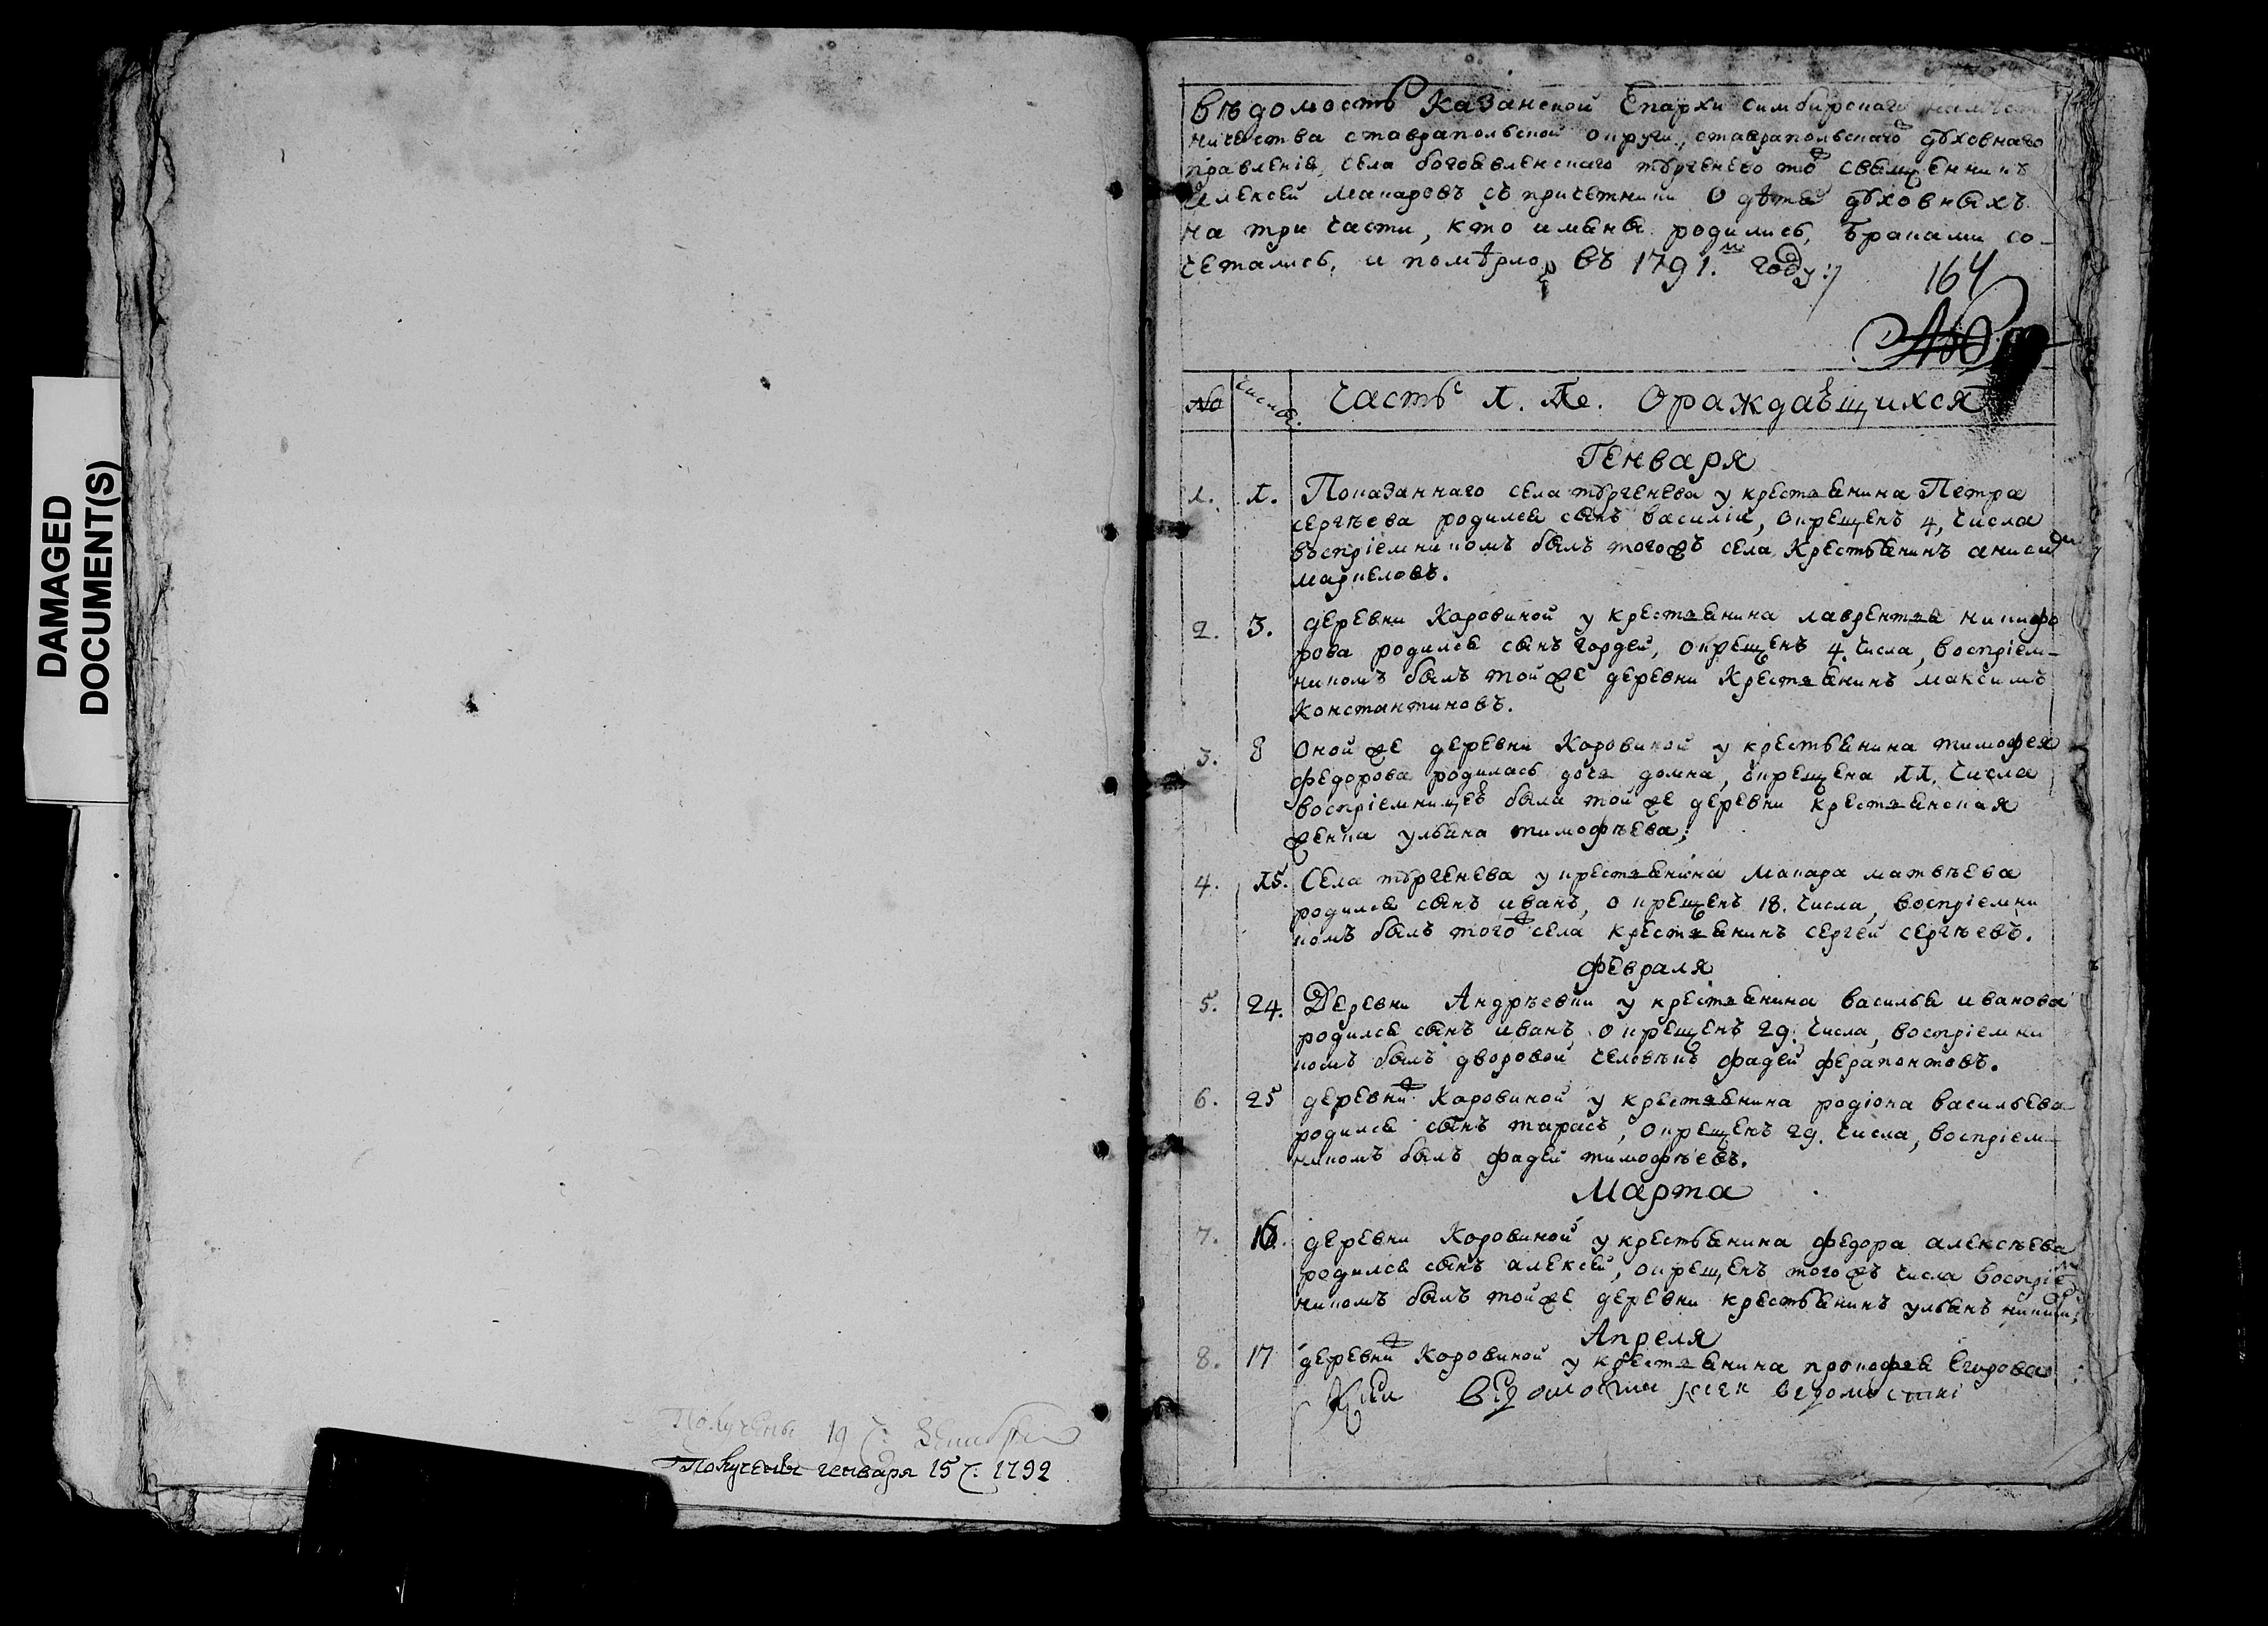 DAMAGED
DOCUMENT(S)
Получены 19 ч:
Получены генваря 15 ч: 1792
Вѣдомость Казанской Епархи симбирскаго намѣст
ничества ставрапольской округи, ставрапольскаго духовнаго
правления, села богоявленскаго тургенево то ж священникъ
Алексей Макаровъ съ причетники О дѣтяхъ духовныхъ
на три части, кто имяны родились, браками со-
четались, и помѣрло, въ 1791.м году:/
164
№ числы. Часть 1. Яе. О раждающихся
Генваря
1. 1. Показаннаго села тургенева у крестьянина Петра
сергѣева родился сынъ василій, окрещенъ 4, числа
воспріемникомъ былъ тогожъ села крестьянинъ анисим
маркеловъ.
2. 3. деревни Коровиной у крестьянина лаврентья никифо
рова родился сынъ гордей, окрещенъ 4. числа, воспріем-
никомъ былъ той же деревни крестьянинъ максимъ
константиновъ.
3. 8 Оной же деревни Коровиной у крестьянина тимофея
федорова родилась дочь домна, окрещена 11. числа
воспріемницею была той же деревни крестьянская
женка ульяна тимофѣева;
4. 15. Села тургенева у крестьянина Макара матвѣева
родился сынъ иванъ, окрещенъ 18. числа, воспріемни
комъ былъ того ж села крестьянинъ сергей сергѣевъ.
февраля
5. 24. Деревни Андрѣевки у крестьянина василья иванова
родился сынъ иванъ окрещенъ 29. числа, воспріемни
комъ былъ дворовой человѣкъ фадей ферапонтовъ.
6. 25 деревни ж Коровиной у крестьянина родіона васильева
родился сынъ тарасъ, окрещенъ 29. числа, воспріем-
никомъ былъ фадей тимофѣевъ.
Марта
7. 16. деревни Коровиной у крестьянина федора алексѣева
родился сынъ алексей, окрещенъ тогожъ числа воспріем
никомъ былъ тойже деревни крестьянинъ ульянъ
Апреля
8. 17 деревни ж Коровиной у крестьянина прокофья Егорова